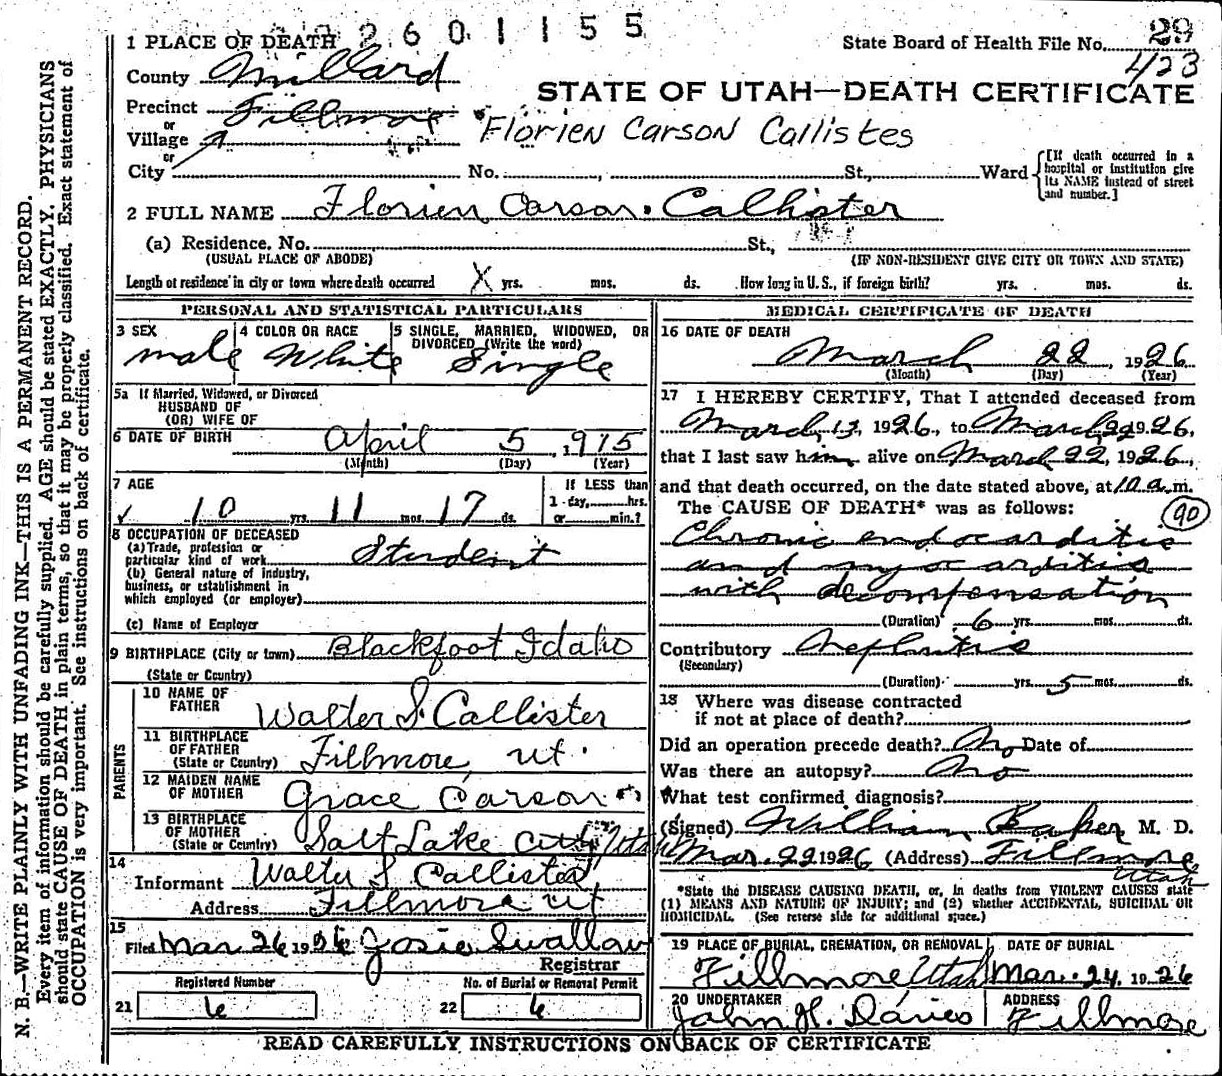 2601155
1 PLACE OF DEATH
State Board of Health File No. 29
423
County Millard
STATE OF UTAH—DEATH CERTIFICATE
Precinct Fillmore
or
Village
Florien Carson Callistes
or
City No. , St., Ward {[If death occurred in a hospital or institution give its NAME instead of street and number.]
2 FULL NAME Florien Carson Callister
(a) Residence, No. St.,
(USUAL PLACE OF ABODE) (IF NON-RESIDENT GIVE CITY OR TOWN AND STATE)
Length of residence in city or town where death occurred X yrs. mos. ds. How long in U. S., if foreign birth? yrs. mos. ds.
PERSONAL AND STATISTICAL PARTICULARS
3 SEX 4 COLOR OR RACE 5 SINGLE, MARRIED, WIDOWED, OR
DIVORCED (Write the word)
male White Single
5a If Married, Widowed, or Divorced
HUSBAND OF
(OR) WIFE OF
6 DATE OF BIRTH April 5, 1915
(Month) (Day) (Year)
7 AGE If LESS than
1 day, hrs.
10 yrs. 11 mos. 17 ds. or min.?
8 OCCUPATION OF DECEASED
(a) Trade, profession or
particular kind of work Student
(b) General nature of industry,
business, or establishment in
which employed (or employer)
(c) Name of Employer
9 BIRTHPLACE (City or town) Blackfoot Idaho
(State or Country)
PARENTS
10 NAME OF
FATHER Walter S. Callister
11 BIRTHPLACE
OF FATHER
(State or Country) Fillmore, Ut.
12 MAIDEN NAME
OF MOTHER Grace Carson
13 BIRTHPLACE
OF MOTHER
(State or Country) Salt Lake City Utah
14
Informant Walter S. Callister
Address Fillmore Ut
15
Filed Mar 26 1926 Josie Swallow
Registrar
Registered Number No. of Burial or Removal Permit
21 6 22 6
MEDICAL CERTIFICATE OF DEATH
16 DATE OF DEATH
March 22, 1926
(Month) (Day) (Year)
17 I HEREBY CERTIFY, That I attended deceased from
March 13, 1926, to March 22 1926,
that I last saw him alive on March 22, 1926,
and that death occurred, on the date stated above, at 10 a.m.
The CAUSE OF DEATH* was as follows: 90
Chronic endocarditis
and myocarditis
with decompensation
(Duration) 6 yrs. mos. ds.
Contributory Nephritis
(Secondary)
(Duration) yrs. 5 mos. ds.
18 Where was disease contracted
if not at place of death?
Did an operation precede death? No Date of
Was there an autopsy? No
What test confirmed diagnosis?
(Signed) William Baker M. D.
Mar. 22 1926 (Address) Fillmore
Utah
*State the DISEASE CAUSING DEATH, or, in deaths from VIOLENT CAUSES state
(1) MEANS AND NATURE OF INJURY; and (2) whether ACCIDENTAL, SUICIDAL OR
HOMICIDAL. (See reverse side for additional space.)
19 PLACE OF BURIAL, CREMATION, OR REMOVAL DATE OF BURIAL
Fillmore Utah Mar. 24, 1926
20 UNDERTAKER ADDRESS
John H. Davies Fillmore
READ CAREFULLY INSTRUCTIONS ON BACK OF CERTIFICATE
N. B.—WRITE PLAINLY WITH UNFADING INK—THIS IS A PERMANENT RECORD.
Every item of information should be carefully supplied. AGE should be stated EXACTLY. PHYSICIANS
should state CAUSE OF DEATH in plain terms, so that it may be properly classified. Exact statement of
OCCUPATION is very important. See instructions on back of certificate.